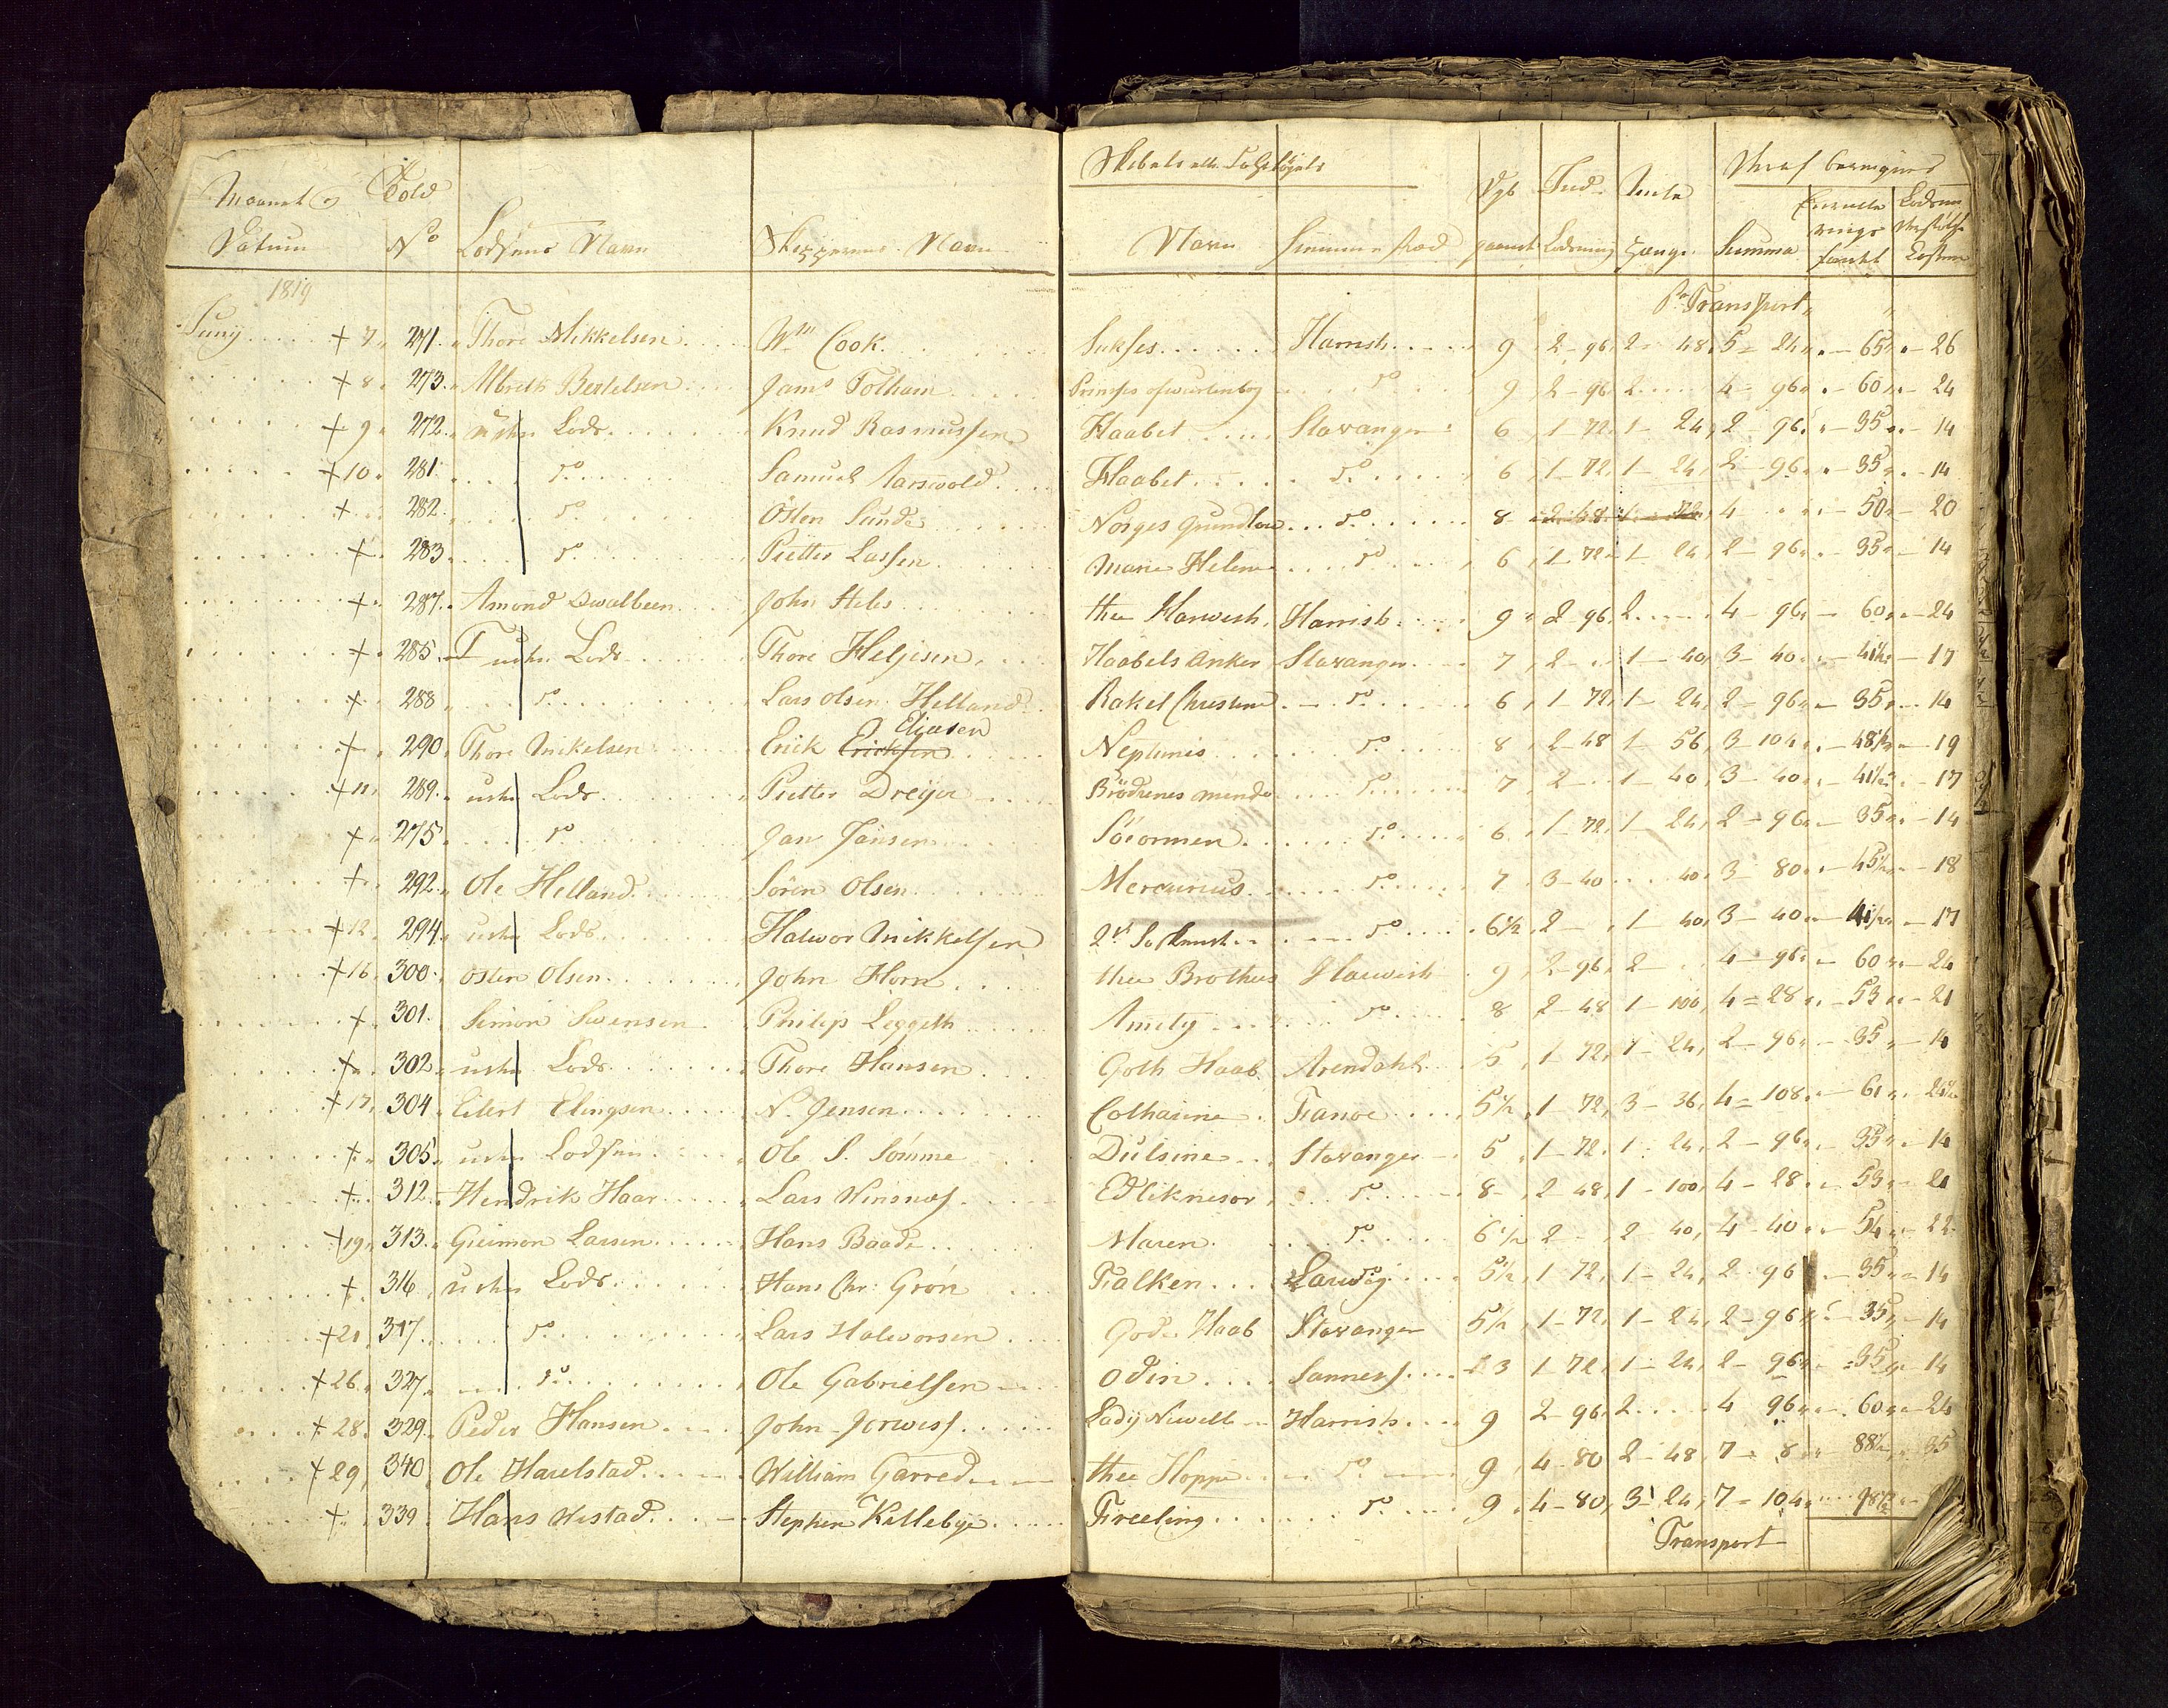 Maanet og Told
Datum No Lodsens Navn Skipperens Navn
1819
Juny + 7 271 Thore Mikkelsen Wm Cook
+ 8 273 Albreth Bertelsen Jams Tolham
+ 9 272 Lods Knud Rasmussen
+ 10 281 do Samuel Aarswold
+ 282 do Østen Sunde
+ 283 do Pitter Lassen
+ 287 Amond Swalbeen John Stiles
+ 285 Lods Thore Heljesen
+ 288 do Lars Olsen Helland
+ 290 Thore Mikelsen Erick Ericksen Eliasen
+ 11 289 Lods Pitter Dreyer
+ 275 do Jan Jansen
+ 292 Ole Helland Sören Olsen
+ 12 294 Lods Halwor Mikkelsen
+ 16 300 Osten Olsen John Horn
+ 301 Simon Swensen Philip Leggeth
+ 302 Lods Thore Hansen
+ 17 304 Eilert Elingsen N. Jensen
+ 305 Lodsen Ole S. Sömme
+ 312 Hendrik Haar Lars Winsnæs
+ 19 313 Giermon Larsen Hans Baade
+ 316 Lods Hans Chr. Grön
+ 21 317 do Lars Halworsen
+ 26 327 do Ole Gabrielsen
+ 28 329 Peder Hansen John Jerwess
+ 29 340 Ole Harelstad William Garred
+ 339 Hans Wistad Stephen Killebye
Skibets eller Fartöyets
Navn Hiemme Sted Dyb gaaend Ind Lodsning Summa
Pr Transport
Sukses Harrish 9 2-96 2-48 5=24 65 26
do 9 2-96 2 4-96 60 24
Haabet Stavanger 6 1-72 1-24 2-96 35 14
Haabet do 6 1-72 1-24 2-96 35 14
Norges Grundlow do 8 2-48 1-72 4 50 20
Marie Helene do 6 1-72 1-24 2-96 35 14
thee Harwich Harrish 9 2-96 2 4-96 60 24
Haabets Anker Stavanger 7 2 1-40 3-40 41½ 17
Rakel Christine do 6 1-72 1-24 2-96 35 14
Neptunis do 8 2-48 1-56 3-104 48½ 19
Brödrenes minde do 7 2 1-40 3-40 41½ 17
Söormen do 6 1-72 1-24 2-96 35 14
Mercurius do 7 3-40 40 3-80 45½ 18
do 6½ 2 1-40 3-40 41½ 17
thee Brothers Harwish 9 2-96 2 4-96 60 24
Amity do 8 2-48 1-100 4=28 53 21
Goth Haab Arendahl 5 1-72 1-24 2-96 35 14
Catharine Fanoe 5½ 1-72 3-36 4=108 61 24½
Dulsine Stavanger 5 1-72 1-24 2-96 35 14
Edliknesor do 8 2-48 1-100 4-28 53 21
Maren do 6½ 2 2-40 4-40 54 22
Falken Laurvig 5½ 1-72 1-24 2-96 35 14
Gode Haab Stavanger 5½ 1-72 1-24 2-96 35 14
Odin Sanness 3 1-72 1-24 2-96 35 14
Lady Newell Harrish 9 2-96 2 4 96 60 24
thee Hoppe do 9 4-80 2-48 7=8 88½ 35
Freeling do 9 4-80 3-24 7=104 98½
Transport